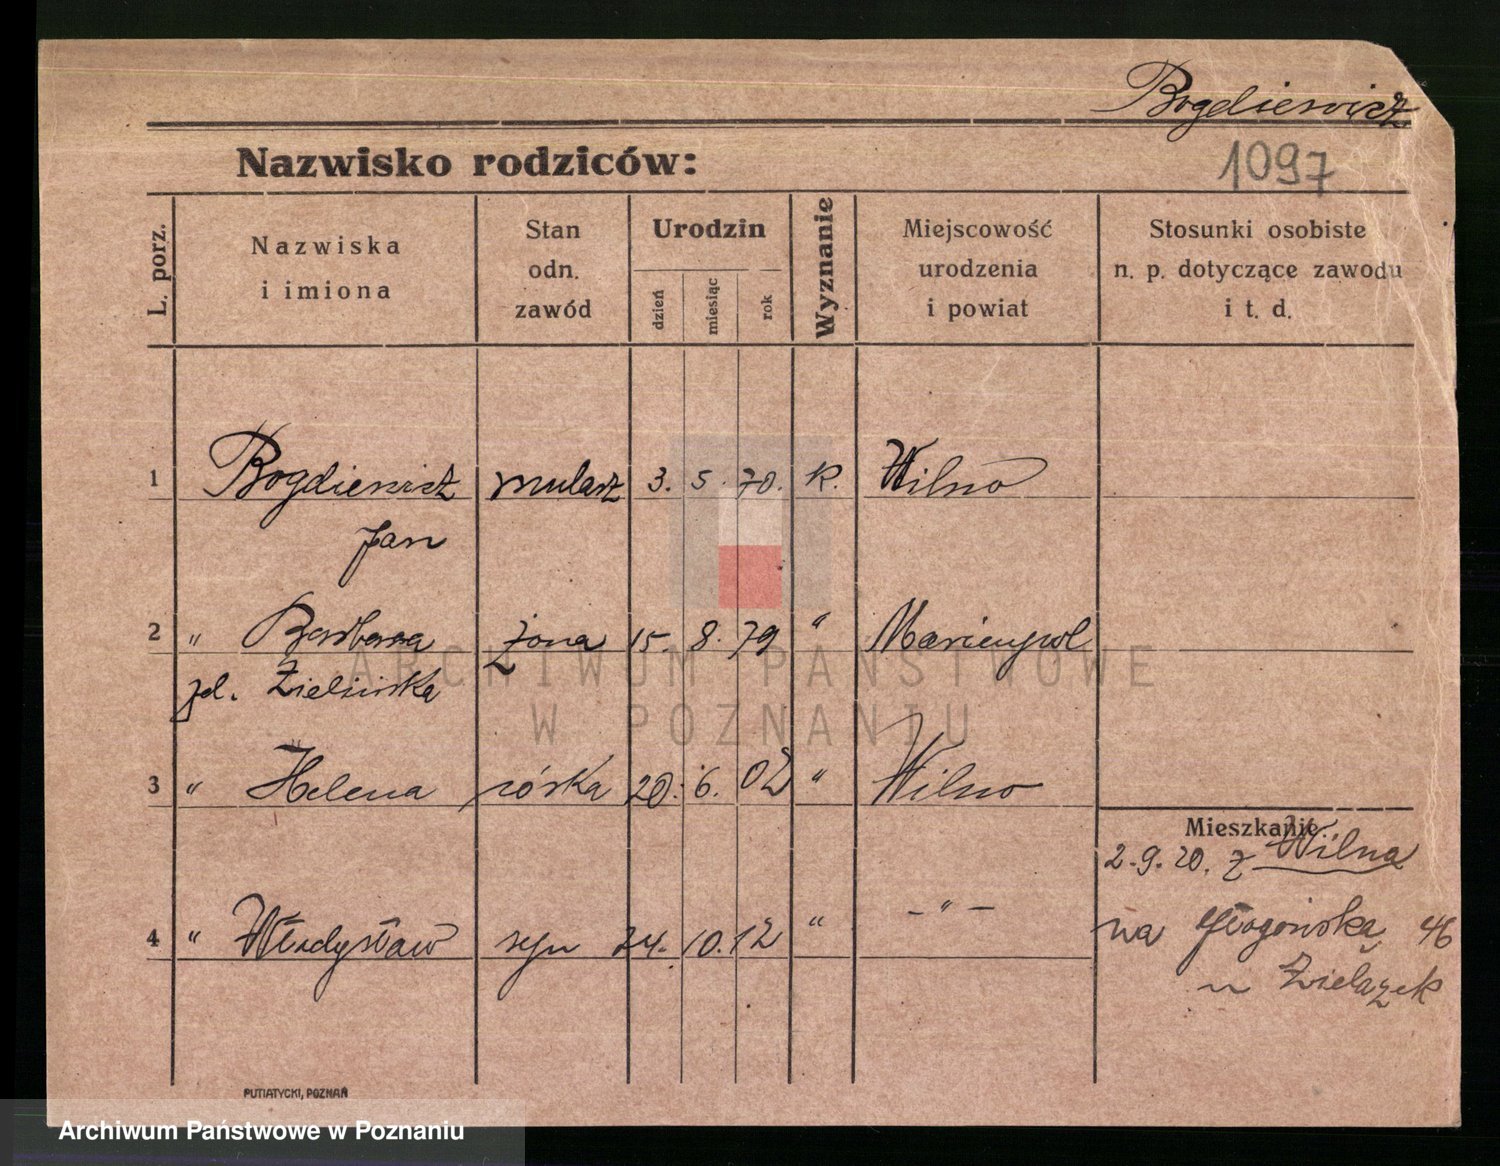 Bogdiewicz
Nazwisko rodziców:
1097
L. porz.
Nazwiska
i imiona
Stan
odn.
zawód
Urodzin
dzień
miesiąc
rok
Wyznanie
Miejscowość
urodzenia
i powiat
Stosunki osobiste
n. p. dotyczące zawodu
i t. d.
1 Bogdiewicz mularz 3. 5. 70. k. Wilno
Jan
2 " Barbara żona 15. 8. 79 " Mariempol
zd. Zielińska
3 " Helena córka 20. 6. 02 " Wilno
Mieszkanie
2.9.20. z Wilna
4 " Władysław syn 24. 10. 12 " - " -
na Głogowską 46
u Zielazek
PUTIATYCKI, POZNAŃ
ARCHIWUM PAŃSTWOWE
W POZNANIU
Archiwum Państwowe w Poznaniu